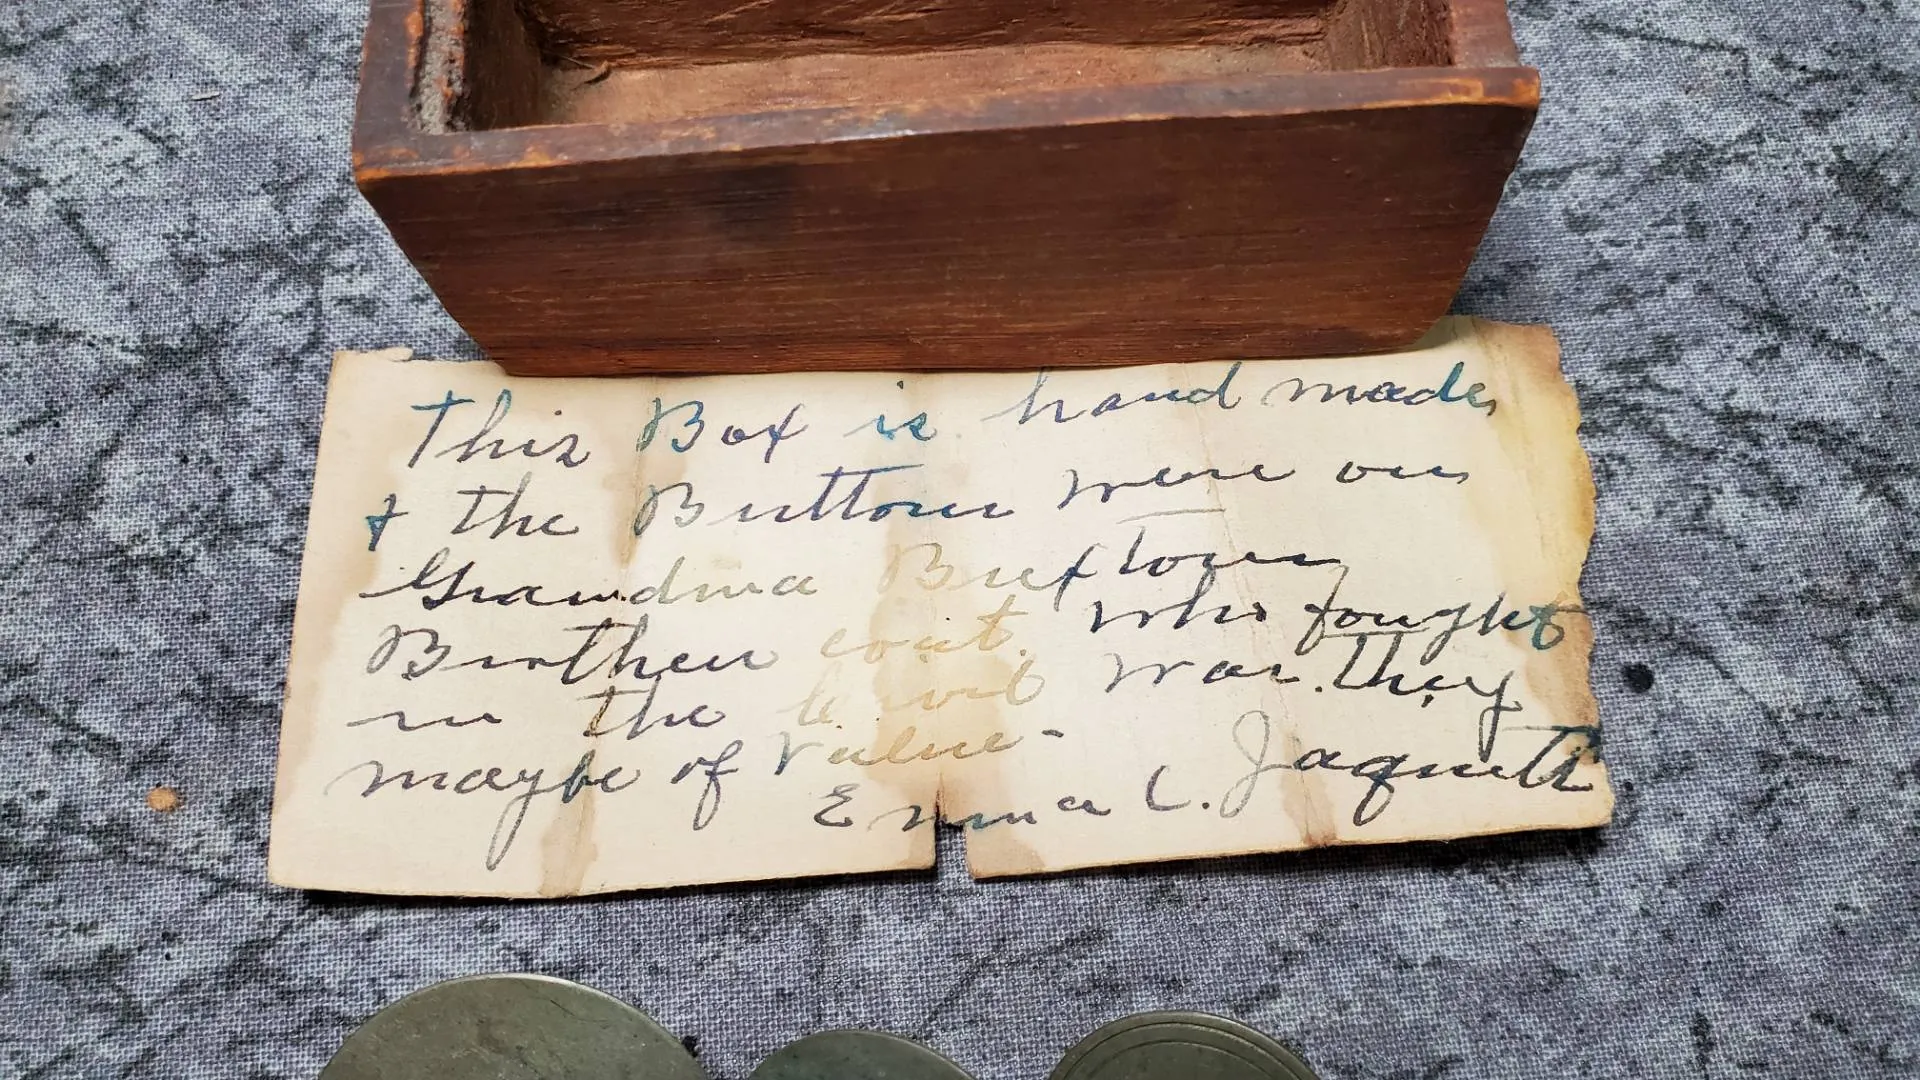 This Box is hand made,
& the Buttons were on
Grandma Buxtons
Brothers coat. who fought
in the Civil War. They
maybe of Value -
Emma C. Jaqueth